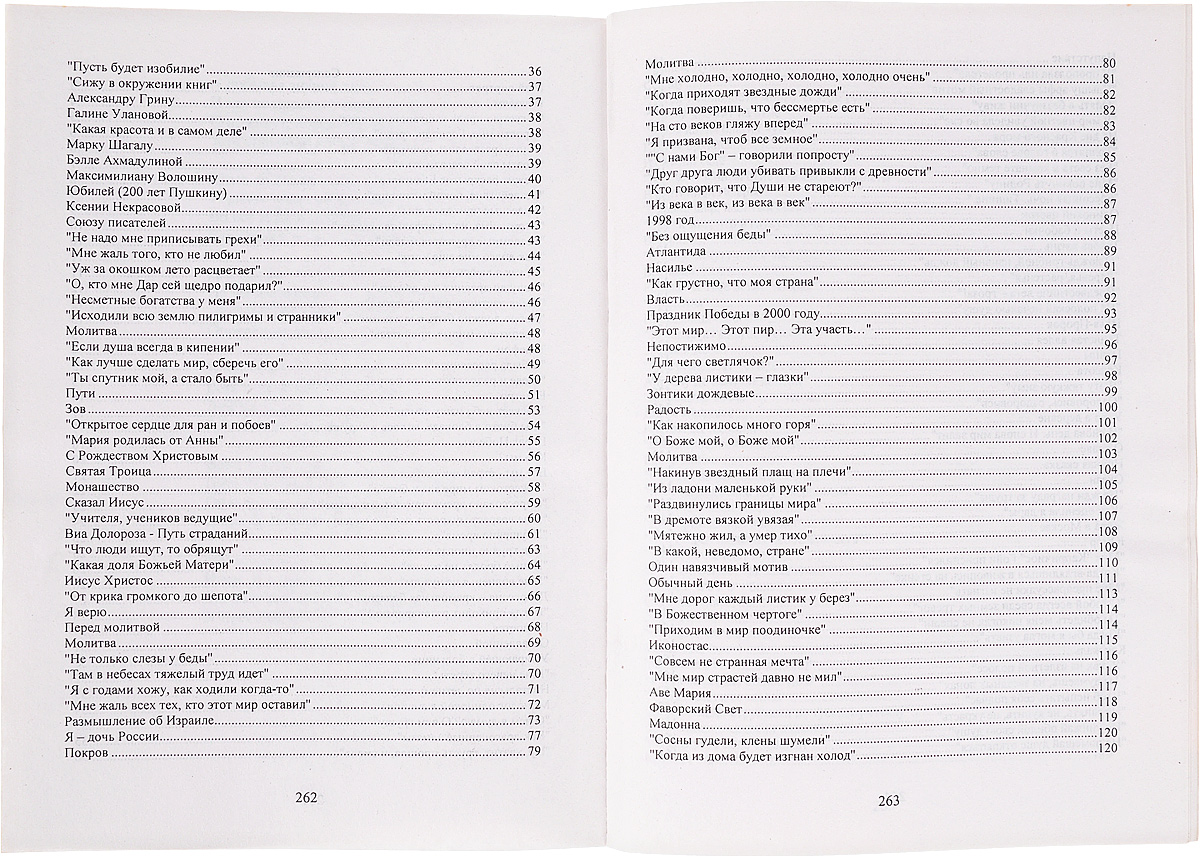 "Пусть будет изобилие"........36
"Сижу в окружении книг"........37
Александру Грину........37
Галине Улановой........38
"Какая красота и в самом деле"........38
Марку Шагалу........39
Бэлле Ахмадулиной........39
Максимилиану Волошину........40
Юбилей (200 лет Пушкину)........41
Ксении Некрасовой........42
Союзу писателей........43
"Не надо мне приписывать грехи"........43
"Мне жаль того, кто не любил"........44
"Уж за окошком лето расцветает"........45
"О, кто мне Дар сей щедро подарил?"........46
"Несметные богатства у меня"........46
"Исходили всю землю пилигримы и странники"........47
Молитва........48
"Если душа всегда в кипении"........48
"Как лучше сделать мир, сберечь его"........49
"Ты спутник мой, а стало быть"........50
Пути........51
Зов........53
"Открытое сердце для ран и побоев"........54
"Мария родилась от Анны"........55
С Рождеством Христовым........56
Святая Троица........57
Монашество........58
Сказал Иисус........59
"Учителя, учеников ведущие"........60
Виа Долороза - Путь страданий........61
"Что люди ищут, то обрящут"........63
"Какая доля Божьей Матери"........64
Иисус Христос........65
"От крика громкого до шепота"........66
Я верю........67
Перед молитвой........68
Молитва........69
"Не только слезы у беды"........70
"Там в небесах тяжелый труд идет"........70
"Я с годами хожу, как ходили когда-то"........71
"Мне жаль всех тех, кто этот мир оставил"........72
Размышление об Израиле........73
Я – дочь России........77
Покров........79
262
Молитва........80
"Мне холодно, холодно, холодно, холодно очень"........81
"Когда приходят звездные дожди"........82
"Когда поверишь, что бессмертье есть"........82
"На сто веков гляжу вперед"........83
"Я призвана, чтоб все земное"........84
""С нами Бог" – говорили попросту"........85
"Друг друга люди убивать привыкли с древности"........86
"Кто говорит, что Души не стареют?"........86
"Из века в век, из века в век"........87
1998 год........87
"Без ощущения беды"........88
Атлантида........89
Насилье........91
"Как грустно, что моя страна"........91
Власть........92
Праздник Победы в 2000 году........93
"Этот мир… Этот пир… Эта участь…"........95
Непостижимо........96
"Для чего светлячок?"........97
"У дерева листики – глазки"........98
Зонтики дождевые........99
Радость........100
"Как накопилось много горя"........101
"О Боже мой, о Боже мой"........102
Молитва........103
"Накинув звездный плащ на плечи"........104
"Из ладони маленькой руки"........105
"Раздвинулись границы мира"........106
"В дремоте вязкой увязая"........107
"Мятежно жил, а умер тихо"........108
"В какой, неведомо, стране"........109
Один навязчивый мотив........110
Обычный день........111
"Мне дорог каждый листик у берез"........113
"В Божественном чертоге"........114
"Приходим в мир поодиночке"........114
Иконостас........115
"Совсем не странная мечта"........116
"Мне мир страстей давно не мил"........116
Аве Мария........117
Фаворский Свет........118
Мадонна........119
"Сосны гудели, клены шумели"........120
"Когда из дома будет изгнан холод"........120
263